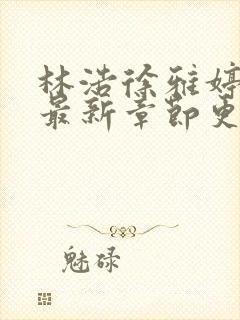 林浩徐雅婷
最新章节更
魅碌